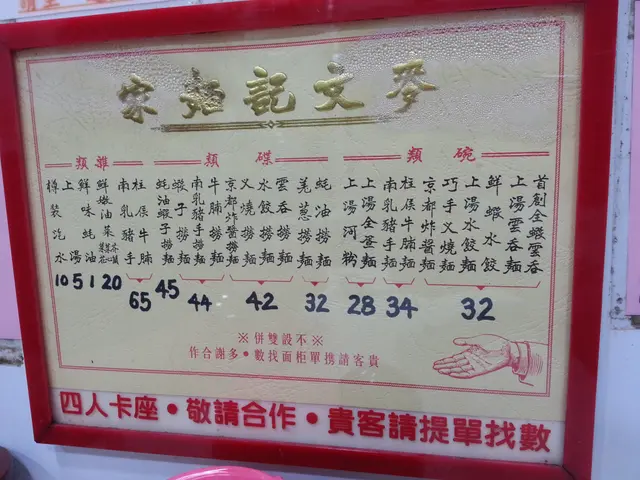 麥文記麵家
碗類
首創全蝦雲吞
上湯雲吞麵
鮮蝦水餃
上湯水餃麵
巧手叉燒麵
32
京都炸醬麵
柱侯牛腩麵
南乳豬手麵
34
上湯全蛋麵
上湯河粉
28
碟類
蚝油撈麵
羗葱撈麵
32
雲吞撈麵
水餃撈麵
叉燒撈麵
京都炸醬撈麵
42
牛腩撈麵
南乳豬手撈麵
44
蝦子撈麵
蚝油蝦子撈麵
45
雜類
柱侯牛腩
南乳豬手
65
鮮嫩油菜
20
鮮味蚝油
1
上湯
5
樽裝汽水
10
※不設雙併※
貴客請携單柜面找數•多謝合作
四人卡座•敬請合作•貴客請提單找數